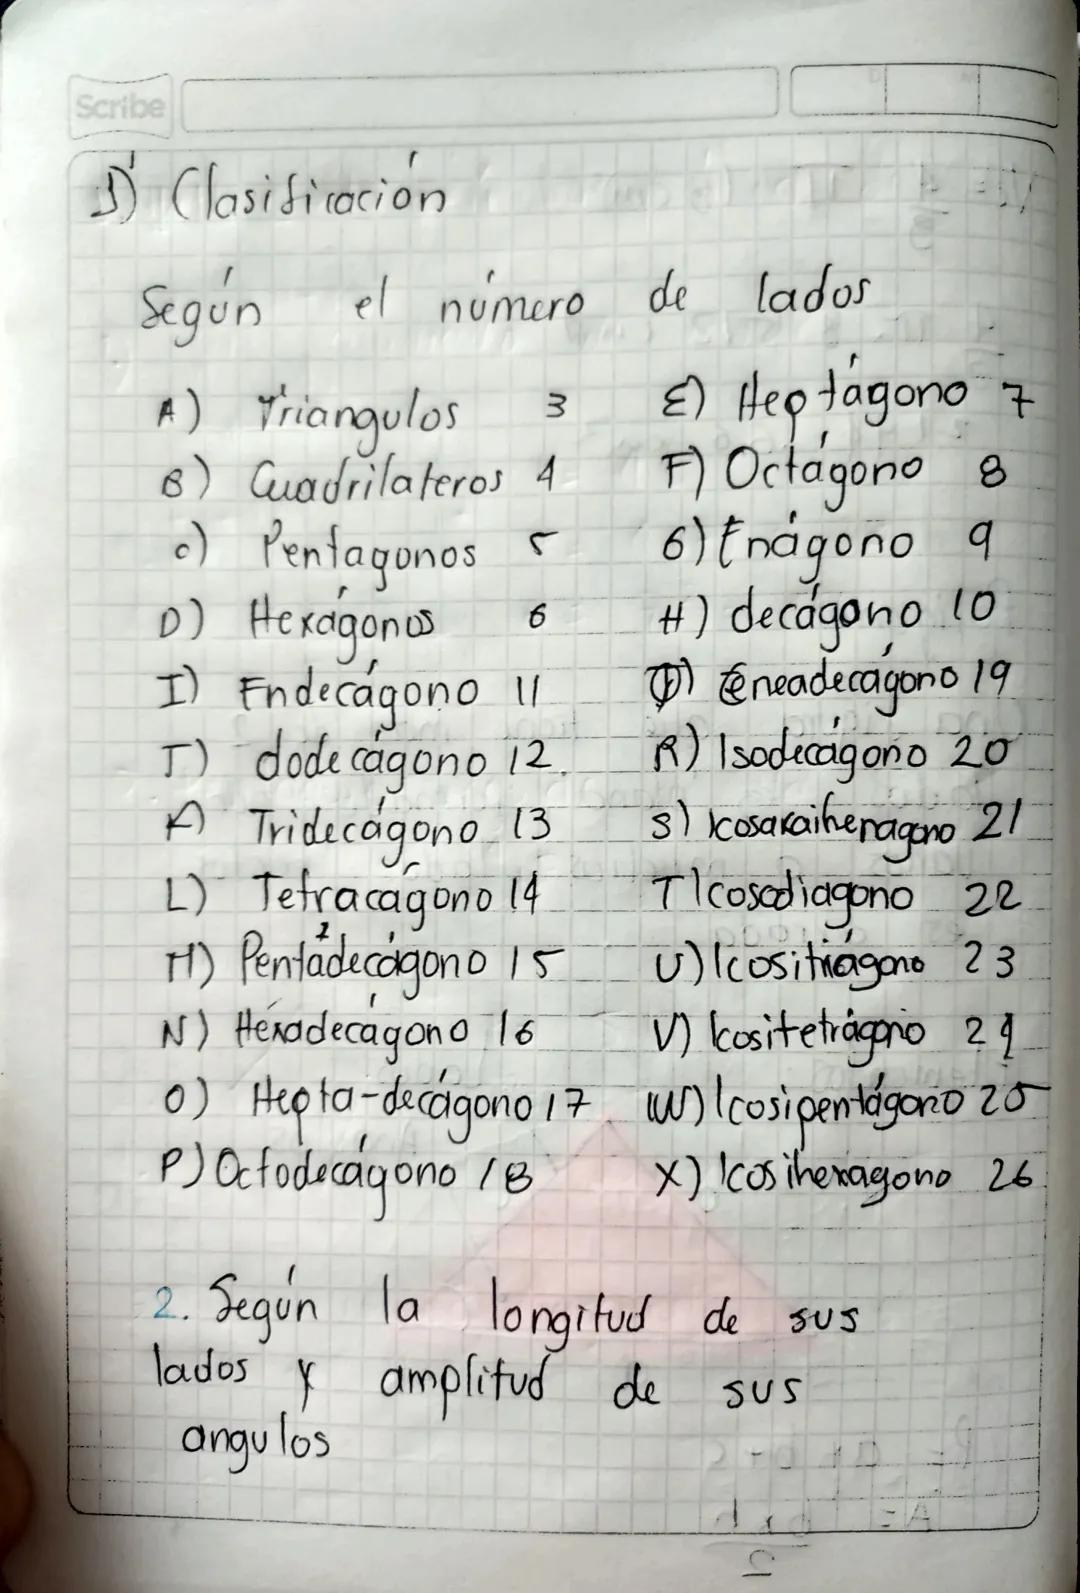 Scribe
1) Clasificación
Según el número de lados
A) Triangulos 3
B) Cuadrilateros 4
C) Pentagonos 5
D) Hexágonos 6
E) Heptágono 7
F) Octágono 8
G) Enágono 9
H) decágono 10
I) Endecágono 11
J) dodecágono 12
K) Tridecágono 13
L) Tetracágono 14
M) Pentadecágono 15
N) Hexadecágono 16
O) Hepta-decágono 17
P) Octodecágono 18
Q) eneadecágono 19
R) Isodecágono 20
S) Icosakaihenagono 21
T Icosodiagono 22
U) Icositriágono 23
V) Icositetrágono 24
W) Icosipentágono 25
X) Icosihexagono 26
2. Según la longitud de sus
lados y amplitud de sus
angulos